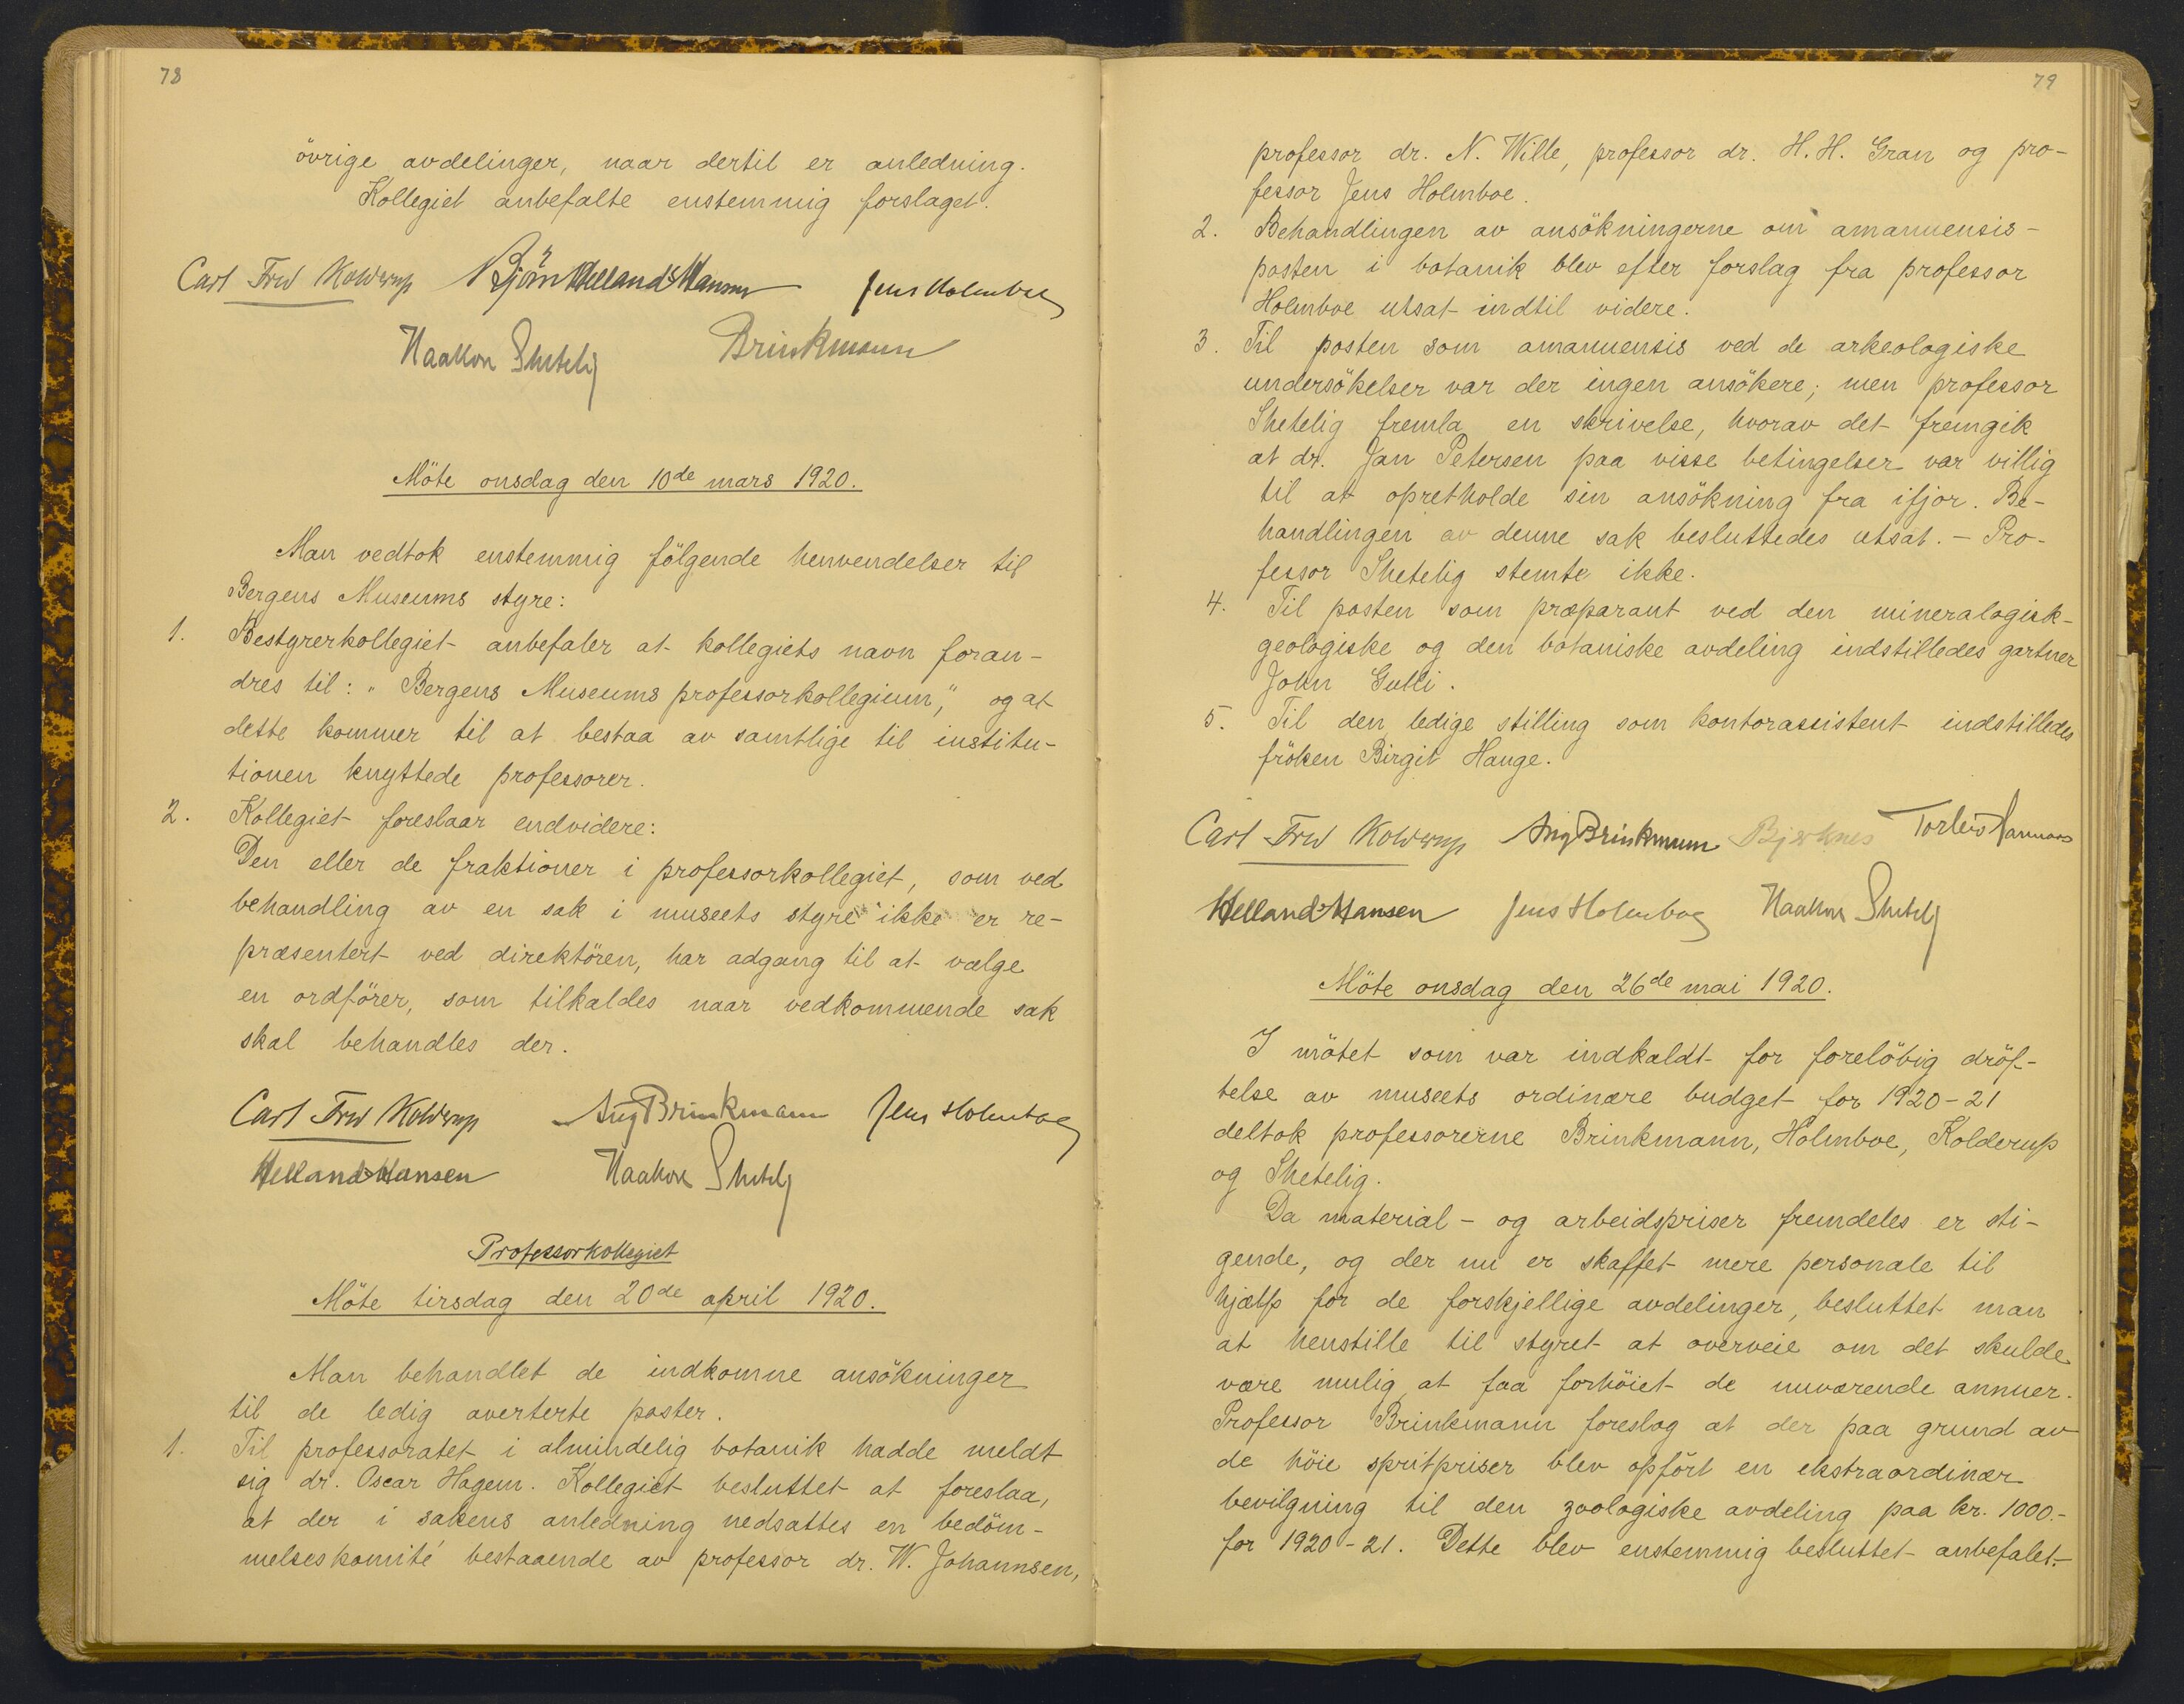 78
övrige avdelinger, naar dertil er anledning.
Kollegiet anbefalte enstemmig forslaget.
Carl Fred Kolderup Björn Helland-Hansen Jens Holmboe
Haakon Shetelig Brinkmann
Möte onsdag den 10de mars 1920.
Man vedtok enstemmig fölgende henvendelser til
Bergens Museums styre:
1. Bestyrerkollegiet anbefaler at kollegiets navn foran-
dres til: "Bergens Museums professorkollegium," og at
dette kommer til at bestaa av samtlige til institu-
tionen knyttede professorer.
2. Kollegiet foreslaar endvidere:
Den eller de fraktioner i professorkollegiet, som ved
behandling av en sak i museets styre ikke er re-
præsentert ved direktören, har adgang til at vælge
en ordförer, som tilkaldes naar vedkommende sak
skal behandles der.
Carl Fred Kolderup Aug Brinkmann Jens Holmboe
Helland-Hansen Haakon Shetelig
Professorkollegiet
Möte tirsdag den 20de april 1920.
Man behandlet de indkomne ansökninger
til de ledig averterte poster.
1. Til professoratet i almindelig botanik hadde meldt
sig dr. Oscar Hagem. Kollegiet besluttet at foreslaa,
at der i sakens anledning nedsattes en bedöm-
melseskomité bestaaende av professor dr. W. Johannsen,
79
professor dr. N. Wille, professor dr. H. H. Gran og pro-
fessor Jens Holmboe.
2. Behandlingen av ansökningerne om amanuensis-
posten i botanik blev efter forslag fra professor
Holmboe utsat indtil videre.
3. Til posten som amanuensis ved de arkeologiske
undersökelser var der ingen ansökere; men professor
Shetelig fremla en skrivelse, hvorav det fremgik
at dr. Jan Petersen paa visse betingelser var villig
til at opretholde sin ansökning fra ifjor. Be-
handlingen av denne sak besluttedes utsat. – Pro-
fessor Shetelig stemte ikke.
4. Til posten som præparant ved den mineralogisk-
geologiske og den botaniske avdeling indstilledes gartner
John Gulli.
5. Til den ledige stilling som kontorassistent indstilledes
fröken Birgit Hauge.
Carl Fred Kolderup Aug Brinkmann Bjerknes Torleiv Hannaas
Helland-Hansen Jens Holmboe Haakon Shetelig
Möte onsdag den 26de mai 1920.
I mötet som var indkaldt for forelöbig dröf-
telse av museets ordinære budget for 1920-21
deltok professorerne Brinkmann, Holmboe, Kolderup
og Shetelig.
Da material- og arbeidspriser fremdeles er sti-
gende, og der nu er skaffet mere personale til
hjælp for de forskjellige avdelinger, besluttet man
at henstille til styret at overveie om det skulde
være mulig at faa forhöiet de nuværende annuer.
Professor Brinkmann foreslog at der paa grund av
de höie spritpriser blev opfört en ekstraordinær
bevilgning til den zoologiske avdeling paa kr. 1000.-
for 1920-21. Dette blev enstemmig besluttet anbefalet.-